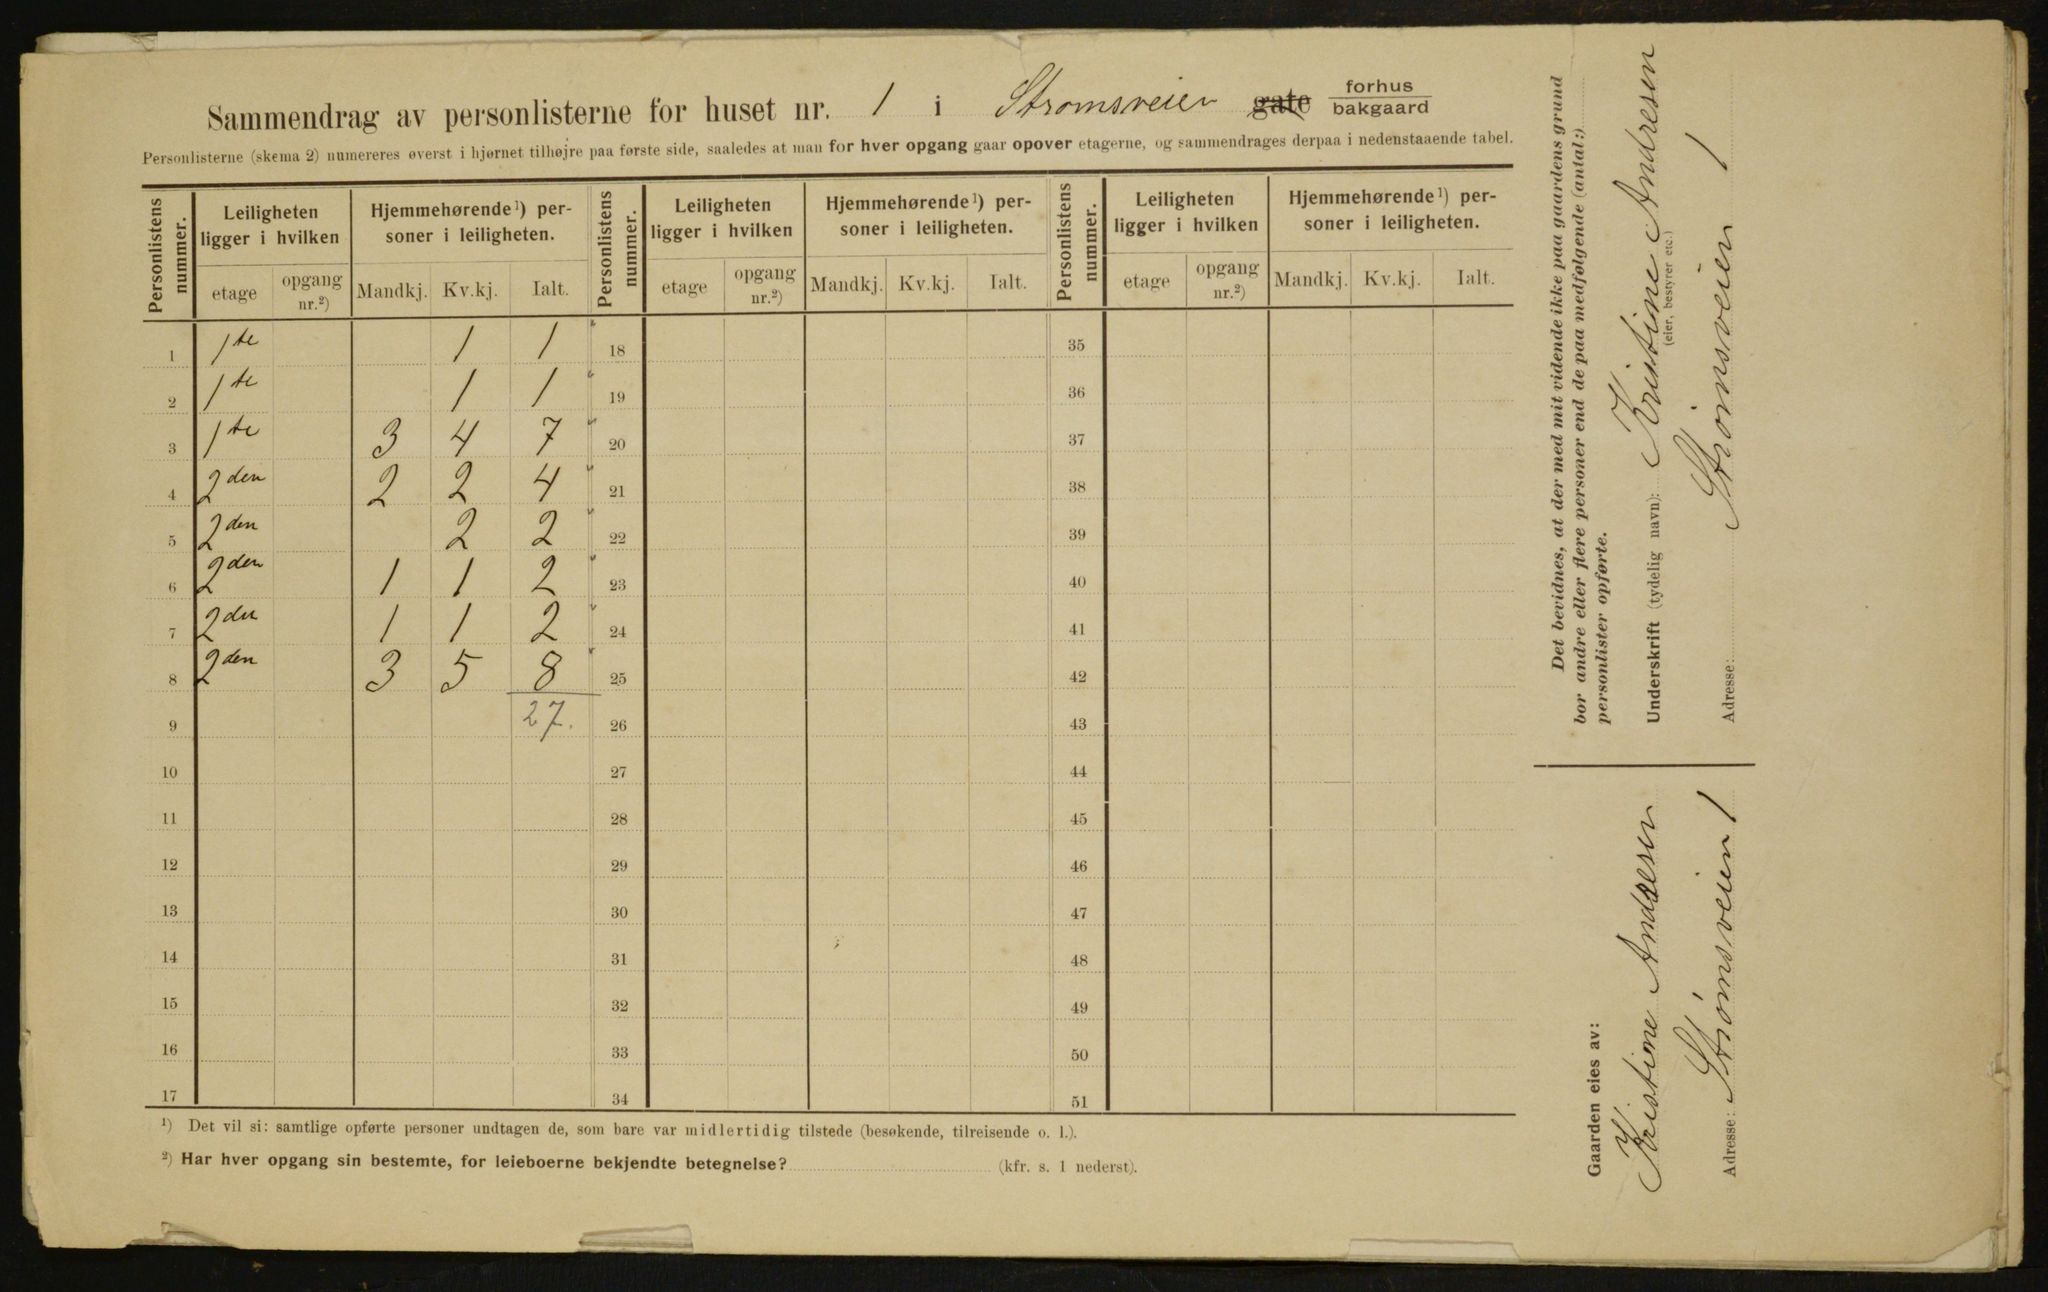 Sammendrag av personlisterne for huset nr. 1 i Strømsveien gate forhus bakgaard
Personlisterne (skema 2) numereres øverst i hjørnet tilhøjre paa første side, saaledes at man for hver opgang gaar opover etagerne, og sammendrages derpaa i nedenstaaende tabel.
Personlistens nummer. Leiligheten ligger i hvilken Hjemmehørende¹) personer i leiligheten. Personlistens nummer. Leiligheten ligger i hvilken Hjemmehørende¹) personer i leiligheten. Personlistens nummer. Leiligheten ligger i hvilken Hjemmehørende¹) personer i leiligheten.
etage opgang nr.²) Mandkj. Kv.kj. Ialt. etage opgang nr.²) Mandkj. Kv.kj. Ialt. etage opgang nr.²) Mandkj. Kv.kj. Ialt.
1 1te 1 1 18 35
2 1te 1 1 19 36
3 1te 3 4 7 20 37
4 2den 2 2 4 21 38
5 2den 2 2 22 39
6 2den 1 1 2 23 40
7 2den 1 1 2 24 41
8 2den 3 5 8 25 42
9 27. 26 43
10 27 44
11 28 45
12 29 46
13 30 47
14 31 48
15 32 49
16 33 50
17 34 51
¹) Det vil si: samtlige opførte personer undtagen de, som bare var midlertidig tilstede (besøkende, tilreisende o. l.).
²) Har hver opgang sin bestemte, for leieboerne bekjendte betegnelse? (kfr. s. 1 nederst).
Det bevidnes, at der med mit vidende ikke paa gaardens grund
bor andre eller flere personer end de paa medfølgende (antal:)
personlister opførte.
Underskrift (tydelig navn): Kristine Andresen
(eier, bestyrer etc.)
Adresse: Strømsveien 1
Gaarden eies av:
Kristine Andresen
Adresse: Strømsveien 1